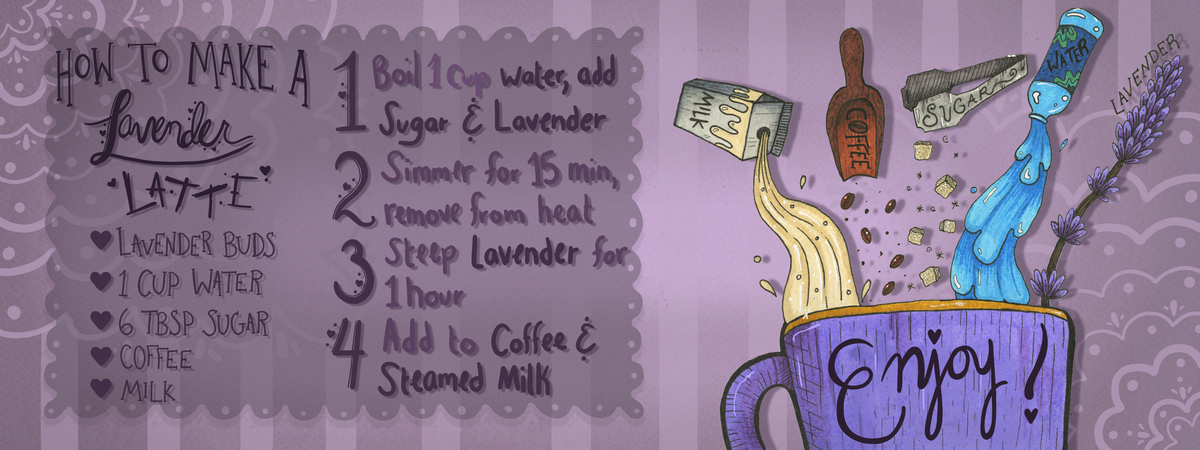 HOW TO MAKE A
Lavender
LATTE
LAVENDER BUDS
1 CUP WATER
6 TBSP SUGAR
COFFEE
MILK
1 Boil 1 cup water, add
Sugar & Lavender
2 Simmer for 15 min,
remove from heat
3 Steep Lavender for
1 hour
4 Add to Coffee &
Steamed Milk
MILK
COFFEE
SUGAR
WATER
LAVENDER
Enjoy!